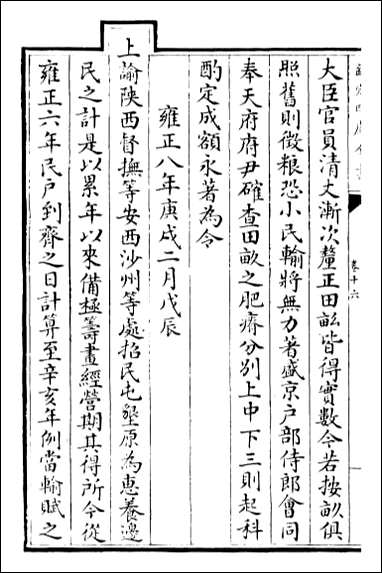 大臣官員清丈漸次釐正田畝皆得實數今若按畝俱
照舊則徵粮恐小民輸將無力著盛京户部侍郎會同
奉天府府尹確查田畝之肥瘠分别上中下三則起科
酌定成額永著為令
雍正八年庚戌二月戊辰
上諭陝西督撫等安西沙州等處招民屯墾原為惠養邊
民之計是以累年以來備極籌畫經營期其得所今從
雍正六年民户到齊之日計算至辛亥年例當輸賦之
卷十六